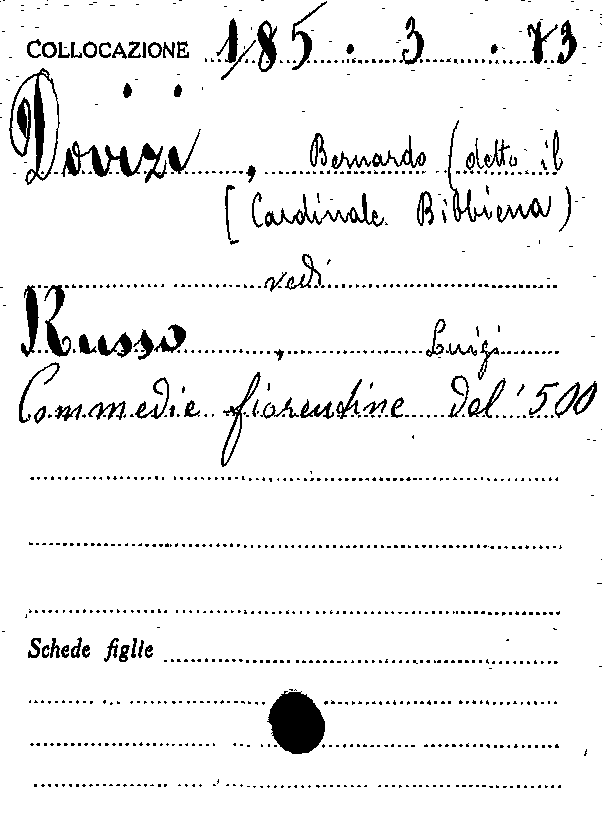 COLLOCAZIONE 185 . 3 . 73
Dovizi , Bernardo (detto il
[Cardinale Bibbiena)
vedi
Russo , Luigi
Commedie fiorentine del '500
Schede figlie